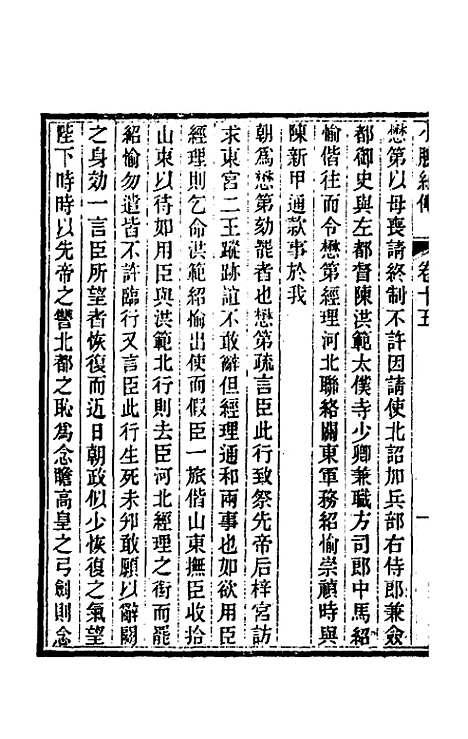 小腆紀傳 卷十五 一
懋第以母喪請終制不許因請使北詔加兵部右侍郎兼僉
都御史與左都督陳洪範太僕寺少卿兼職方司郎中馬紹
愉偕往而令懋第經理河北聯絡關東軍務紹愉崇禎時與
陳新甲通款事於我
朝爲懋第劾罷者也懋第疏言臣此行致祭先帝后梓宮訪
求東宮二王蹤跡誼不敢辭但經理通和兩事也如欲用臣
經理則乞命洪範紹愉出使而假臣一旅偕山東撫臣收拾
山東以待如用臣與洪範北行則去臣河北經理之銜而罷
紹愉勿遣皆不許臨行又言臣此行生死未卸敢願以辭闕
之身効一言臣所望者恢復而近日朝政似少恢復之氣望
陛下時時以先帝之讐北都之恥爲念瞻高皇之弓劍則念